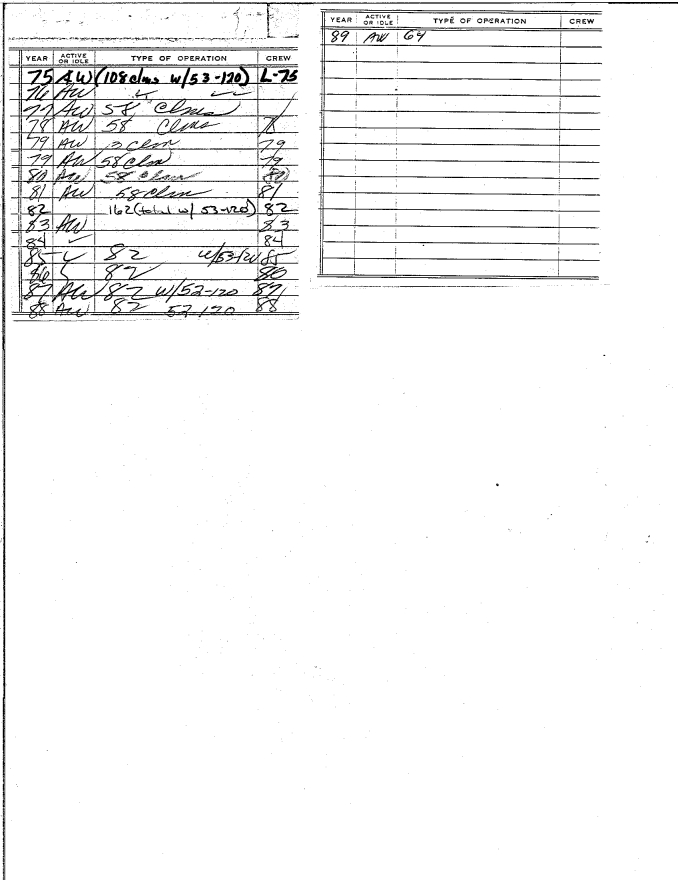 YEAR ACTIVE OR IDLE TYPE OF OPERATION CREW
75 AW (108 clms w/53-120) L-75
76 AW ✓ ✓✓
77 AW 58 Clms /
78 AW 58 Clms 78
79 AW Clm 79
79 AW 58 Clm 79
80 AW 58 Clm 80
81 AW 58 Clm 81
82 162 (total w/ 53-120) 82
83 AW 83
84 ✓ 84
85 82 w/53-120 85
86 82 86
87 AW 82 w/52-120 87
88 AW 82 52-120 88
YEAR ACTIVE OR IDLE TYPE OF OPERATION CREW
89 AW 64